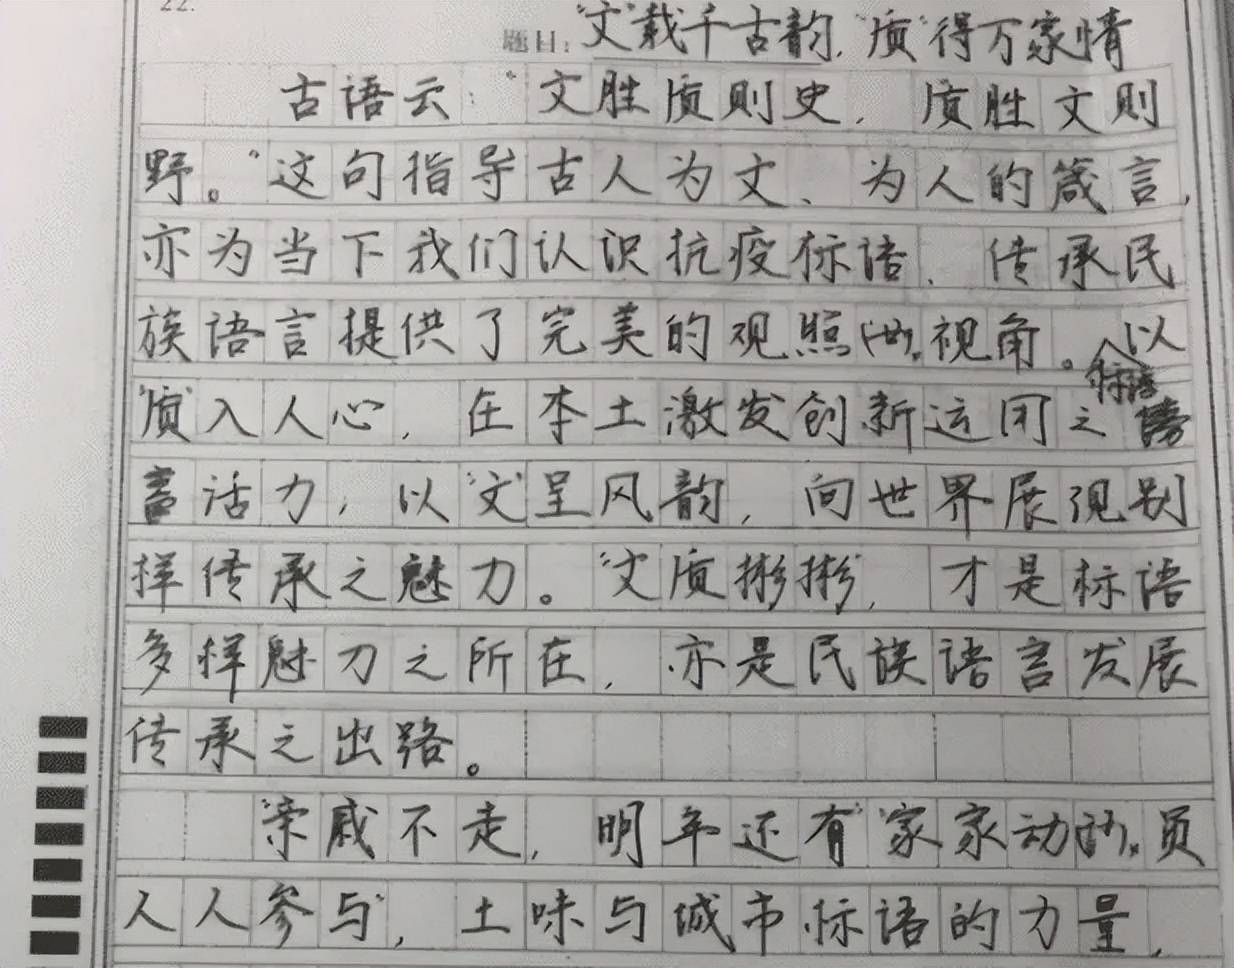 22.
题目："文"载千古韵，"质"得万家情
古语云："文胜质则史，质胜文则
野。"这句指导古人为文、为人的箴言，
亦为当下我们认识抗疫标语、传承民
族语言提供了完美的观照视角。以
标语
"质"入人心，在本土激发创新运用之
活力，以"文"呈风韵，向世界展现别
样传承之魅力。"文质彬彬"，才是标语
多样魅力之所在，亦是民族语言发展
传承之出路。
"亲戚不走，明年还有""家家动员
人人参与"，土味与城市标语的力量，